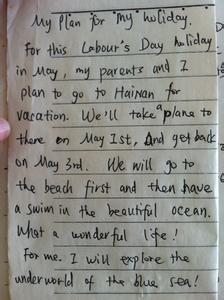 My Plan for my holiday.
For this Labour's Day holiday
in May, my parents and I
plan to go to Hainan for
vacation. We'll take a plane to
there on May 1st, and get back
on May 3rd. We will go to
the beach first and then have
a swim in the beautiful ocean.
What a wonderful life!
For me. I will explore the
underworld of the blue sea!